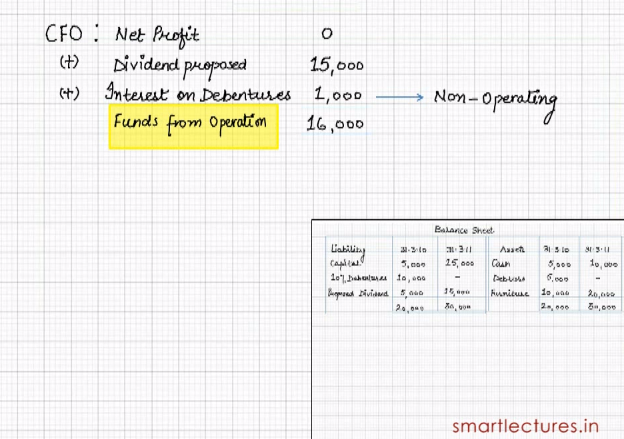 CFO : Net Profit 0
(+) Dividend proposed 15,000
(+) Interest on Debentures 1,000 → Non-Operating
Funds from Operation 16,000
Balance Sheet
Liability 31.3.10 31.3.11 Asset 31.3.10 31.3.11
Capital 5,000 15,000 Cash 5,000 10,000
10% Debentures 10,000 - Debtors 5,000 -
Proposed Dividend 5,000 15,000 Furniture 10,000 20,000
20,000 30,000 20,000 30,000
smartlectures.in